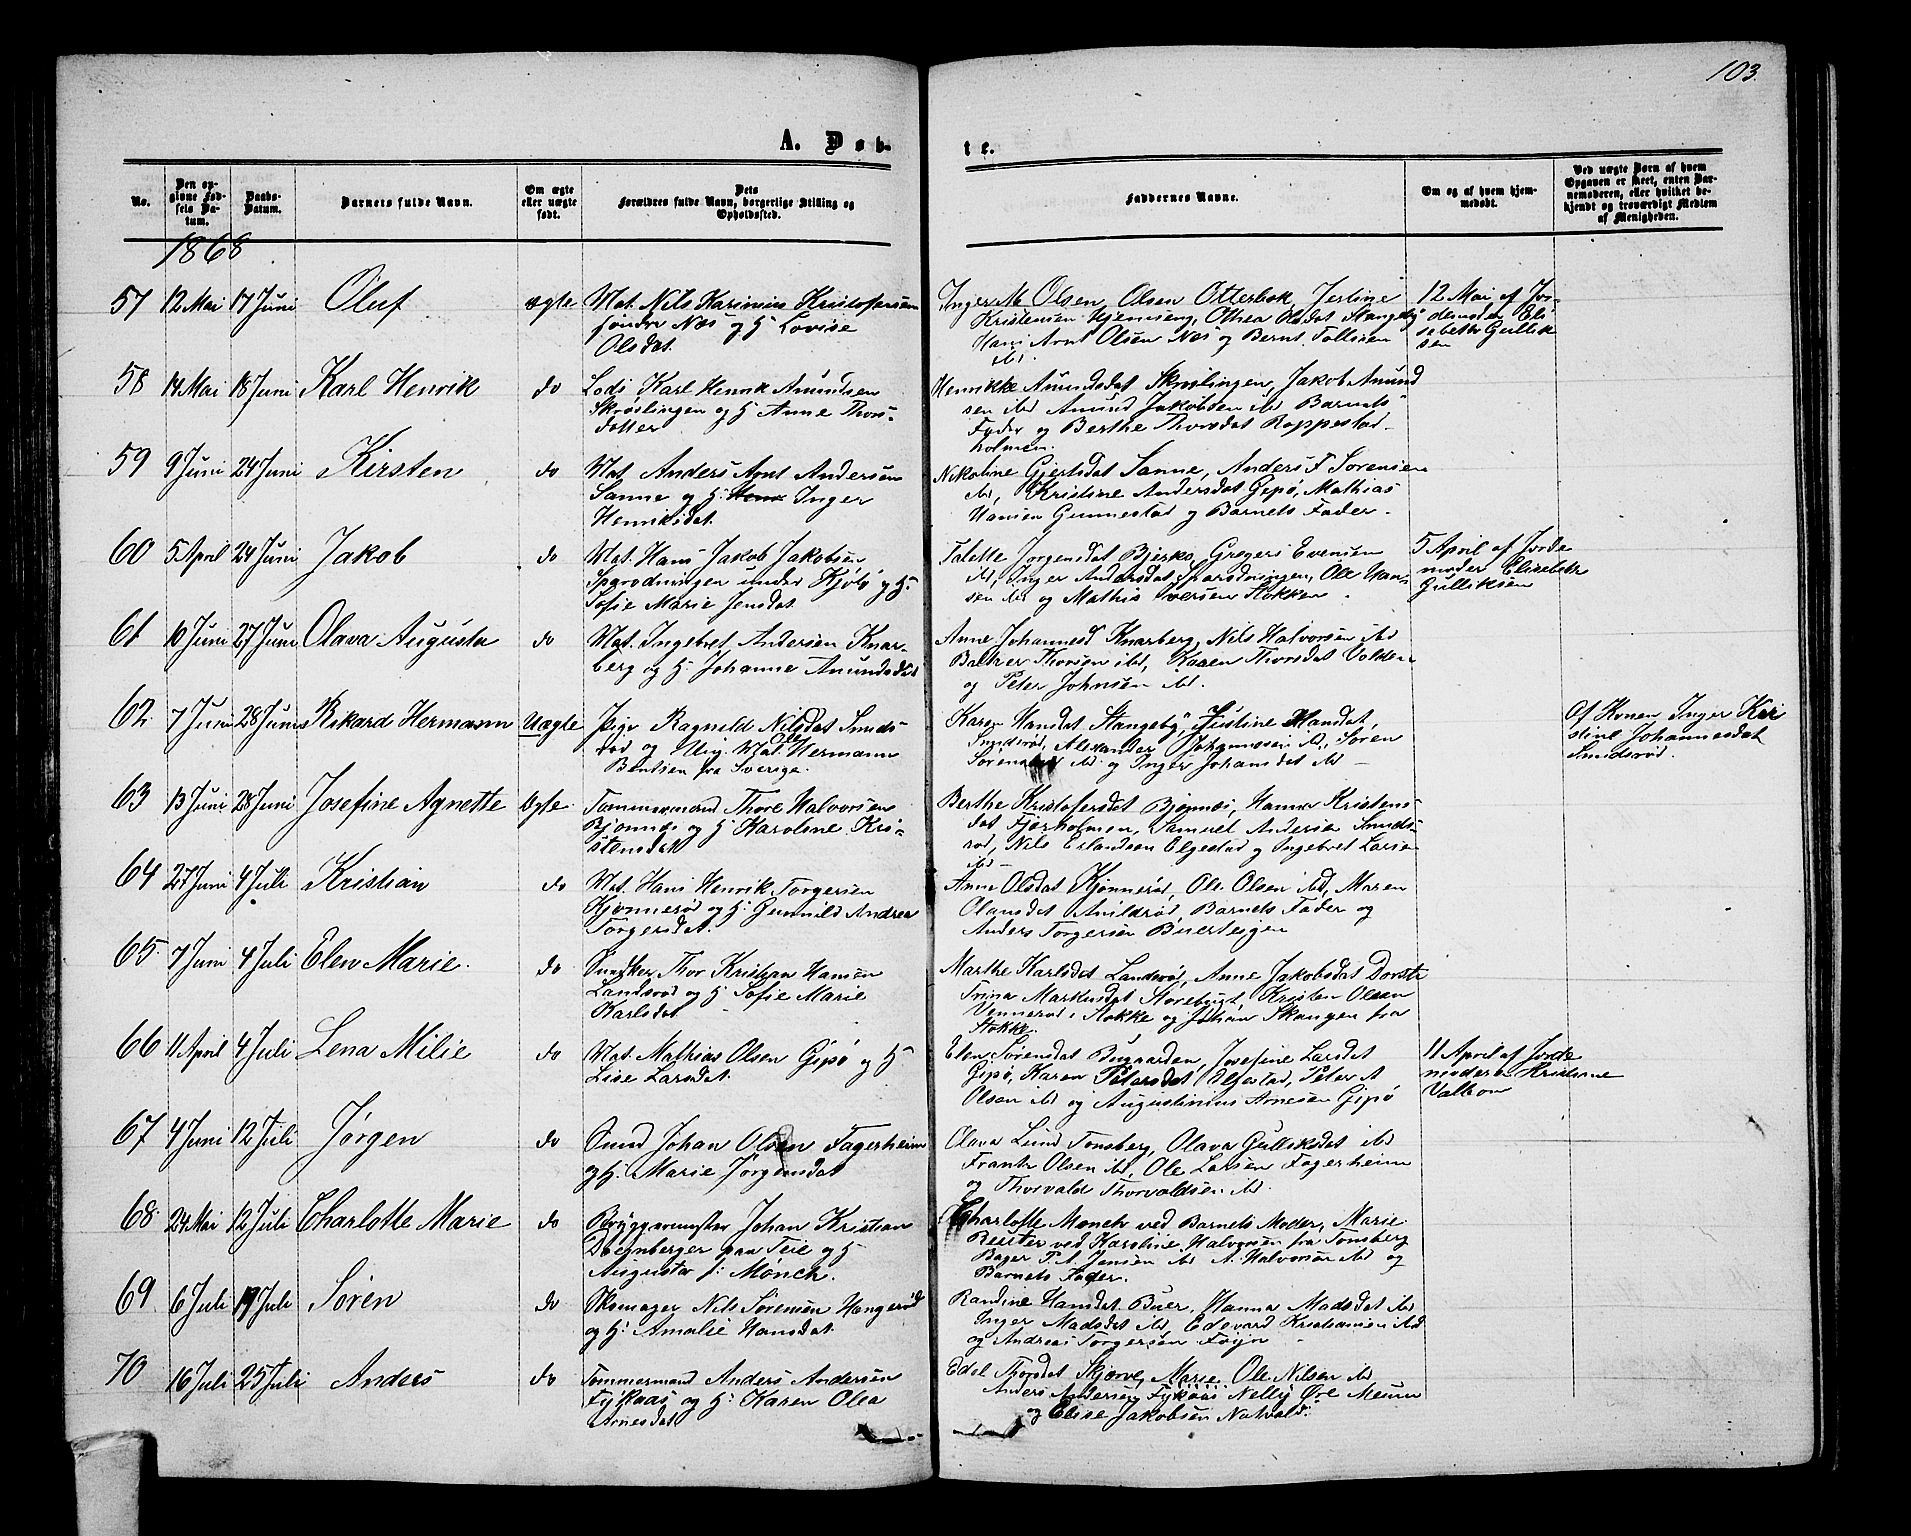 103.
A. Døb-
te.
No.
Den op-
givne Fød-
sels Da-
tum.
Daabs-
Datum.
Barnets fulde Navn.
Om ægte
eller uægte
født.
Dets
Forældres fulde Navn, borgerlige Stilling og
Opholdssted.
Faddernes Navne.
Om og af hvem hjem-
medøbt.
Ved uægte Børn af hvem
Opgaven er skeet, enten Bar-
nemoderen, eller hvilket be-
kjendt og troværdigt Medlem
af Menigheden.
1868
57 12 Mai 17 Juni Oluf ægte Mat. Nils Karinius Kristofersen
søndre Næs og H Lovise
Olsdat.
Inger M Olsen, Olsen Otterbek, Jerline
Kristensen Hjemseng, Othea Olsdat Stangeby
Hans Arnt Olsen Næs og Bernt Tollisen
ibd.
12 Mai, af Jor-
demoder Eli-
sebeth Gullik
sen
58 14 Mai 18 Juni Karl Henrik do Lods Karl Henrik Amundsen
Skrøslingen og H Anne Thors-
datter
Henrikke Amundsdat Skrøslingen, Jakob Amund
sen ibd Amund Jakobsen ibd Barnets
Fader og Berthe Thorsdat Roppestad-
holmen.
59 9 Juni 24 Juni Kirsten do Mat. Anders Arnt Andersen
Sanne og H: Inger
Henriksdat.
Nikoline Gjertsdat Sanne, Anders F Sørensen
ibd, Kristine Andersdat Gipø, Mathias
Hansen Gunnestad og Barnets Fader.
60 5 April 24 Juni Jakob do Mat. Hans Jakob Jakobsen
Sparødningen under Kjøle og H:
Sofie Marie Jensdat
Talette Jørgensdat Bjerkø, Gregers Evensen
ibd, Inger Andersdat Sparødningen, Ole Han-
sen ibd og Mathis Iversen Stokken.
5 April af Jorde
moder Elisebeth
Gulliksen
61 10 Juni 27 Juni Olava Augusta do Mat. Ingebret Andersen Knar-
berg og H Johanne Amundsdat
Anne Johannesd Knarberg, Nils Halvorsen ibd
Balther Thorsen ibd, Karen Thorsdat Volden
og Peter Johnsen ibd.
62 7 Juni 28 Juni Rikard Hermann Uægte Pige Ragnild Nilsdat Smids-
rød og Ung. Mat. Ole Hermann
Bentsen fra Sverige.
Karen Hansdat Stangeby, Justine Hansdat,
Smidsrød, Alexander Johannesen ibd, Søren
Sørensen ibd og Inger Johansdat ibd
Af Konen Inger Kri
stine Johannesdat
Smidsrød.
63 13 Juni 28 Juni Josefine Agnette Ægte Tømmermand Thore Halvorsen
Bjønnes og H Karoline Kri-
stensdat
Berthe Kristofersdat Bjønnes, Hanna Kristens-
dat Fjærholmen, Samuel Andersen Smids-
rød, Nils Erlandsen Elgestad og Ingebret Larsen
ibd
64 27 Juni 4 Juli Kristian do Mat. Hans Henrik Torgersen
Kjønnerød og H: Gunnild Andrea
Torgersdat.
Anne Olsdat Kjønnerød, Ole Olsen ibd, Maren
Olansdat Anildrød, Barnets Fader og
Anders Torgersen Buerteigen
65. 7 Juni 4 Juli Elen Marie. do Snedker Thor Kristian Hansen
Landsrød og H Sofie Marie
Karlsdat
Marthe Karlsdat Landsrød, Anne Jakobsdat Dorste
Trina Markusdat Storebugt, Kristen Olsen
Vennerød i Stokke og Johan Skangen fra
Stokke.
66 11 April 4 Juli Lena Milie do Mat. Mathias Olsen Gipø og H
Lise Larsdat
Elen Sørensdat Bugaarden, Josefine Larsdat
Gipø, Karen Petersdat Elgestad, Peter A
Olsen ibd og Augustinius Arnesen Gipø
11 April af Jorde
moderen Kristiane
Vallson
67 4 Juni 12 Juli Jørgen do Smed Johan Olsen Fagerheim
og H: Marie Jørgensdat
Olava Lund Tønsberg, Olava Gulliksdat ibd
Frantz Olsen ibd, Ole Larsen Fagerheim
og Thorvald Thorvaldsen ibd.
68. 24 Mai 12 Juli Charlotte Marie do Bryggermester Johan Kristian
Doernberger paa Teie og H
Augusta f: Mønch.
Charlotte Mønch ved Barnets Moder, Marie
Beister ved Karoline Halvorsen fra Tønsberg
Bager P. A. Jensen ibd A. Halvorsen ibd og
Barnets Fader.
69 6 Juli 19 Juli Søren do Skomager Nils Sørensen Hangerød
og H: Amalie Hansdat.
Randine Hansdat Buer, Hanna Madsdat ibd
Inger Madsdat ibd, Edevard Kristiansen ibd
og Andreas Torgersen Føyn
70 16 Juli 25 Juli Anders do Tømmermand Anders Andersen
Fykaas og H Karen Olea
Arnesdat
Edel Thorsdat Skjerve, Marie Ole Nilsen ibd
Anders Andersen Fykaas Nelly Øre Meum
og Elise Jakobsen Natvald.